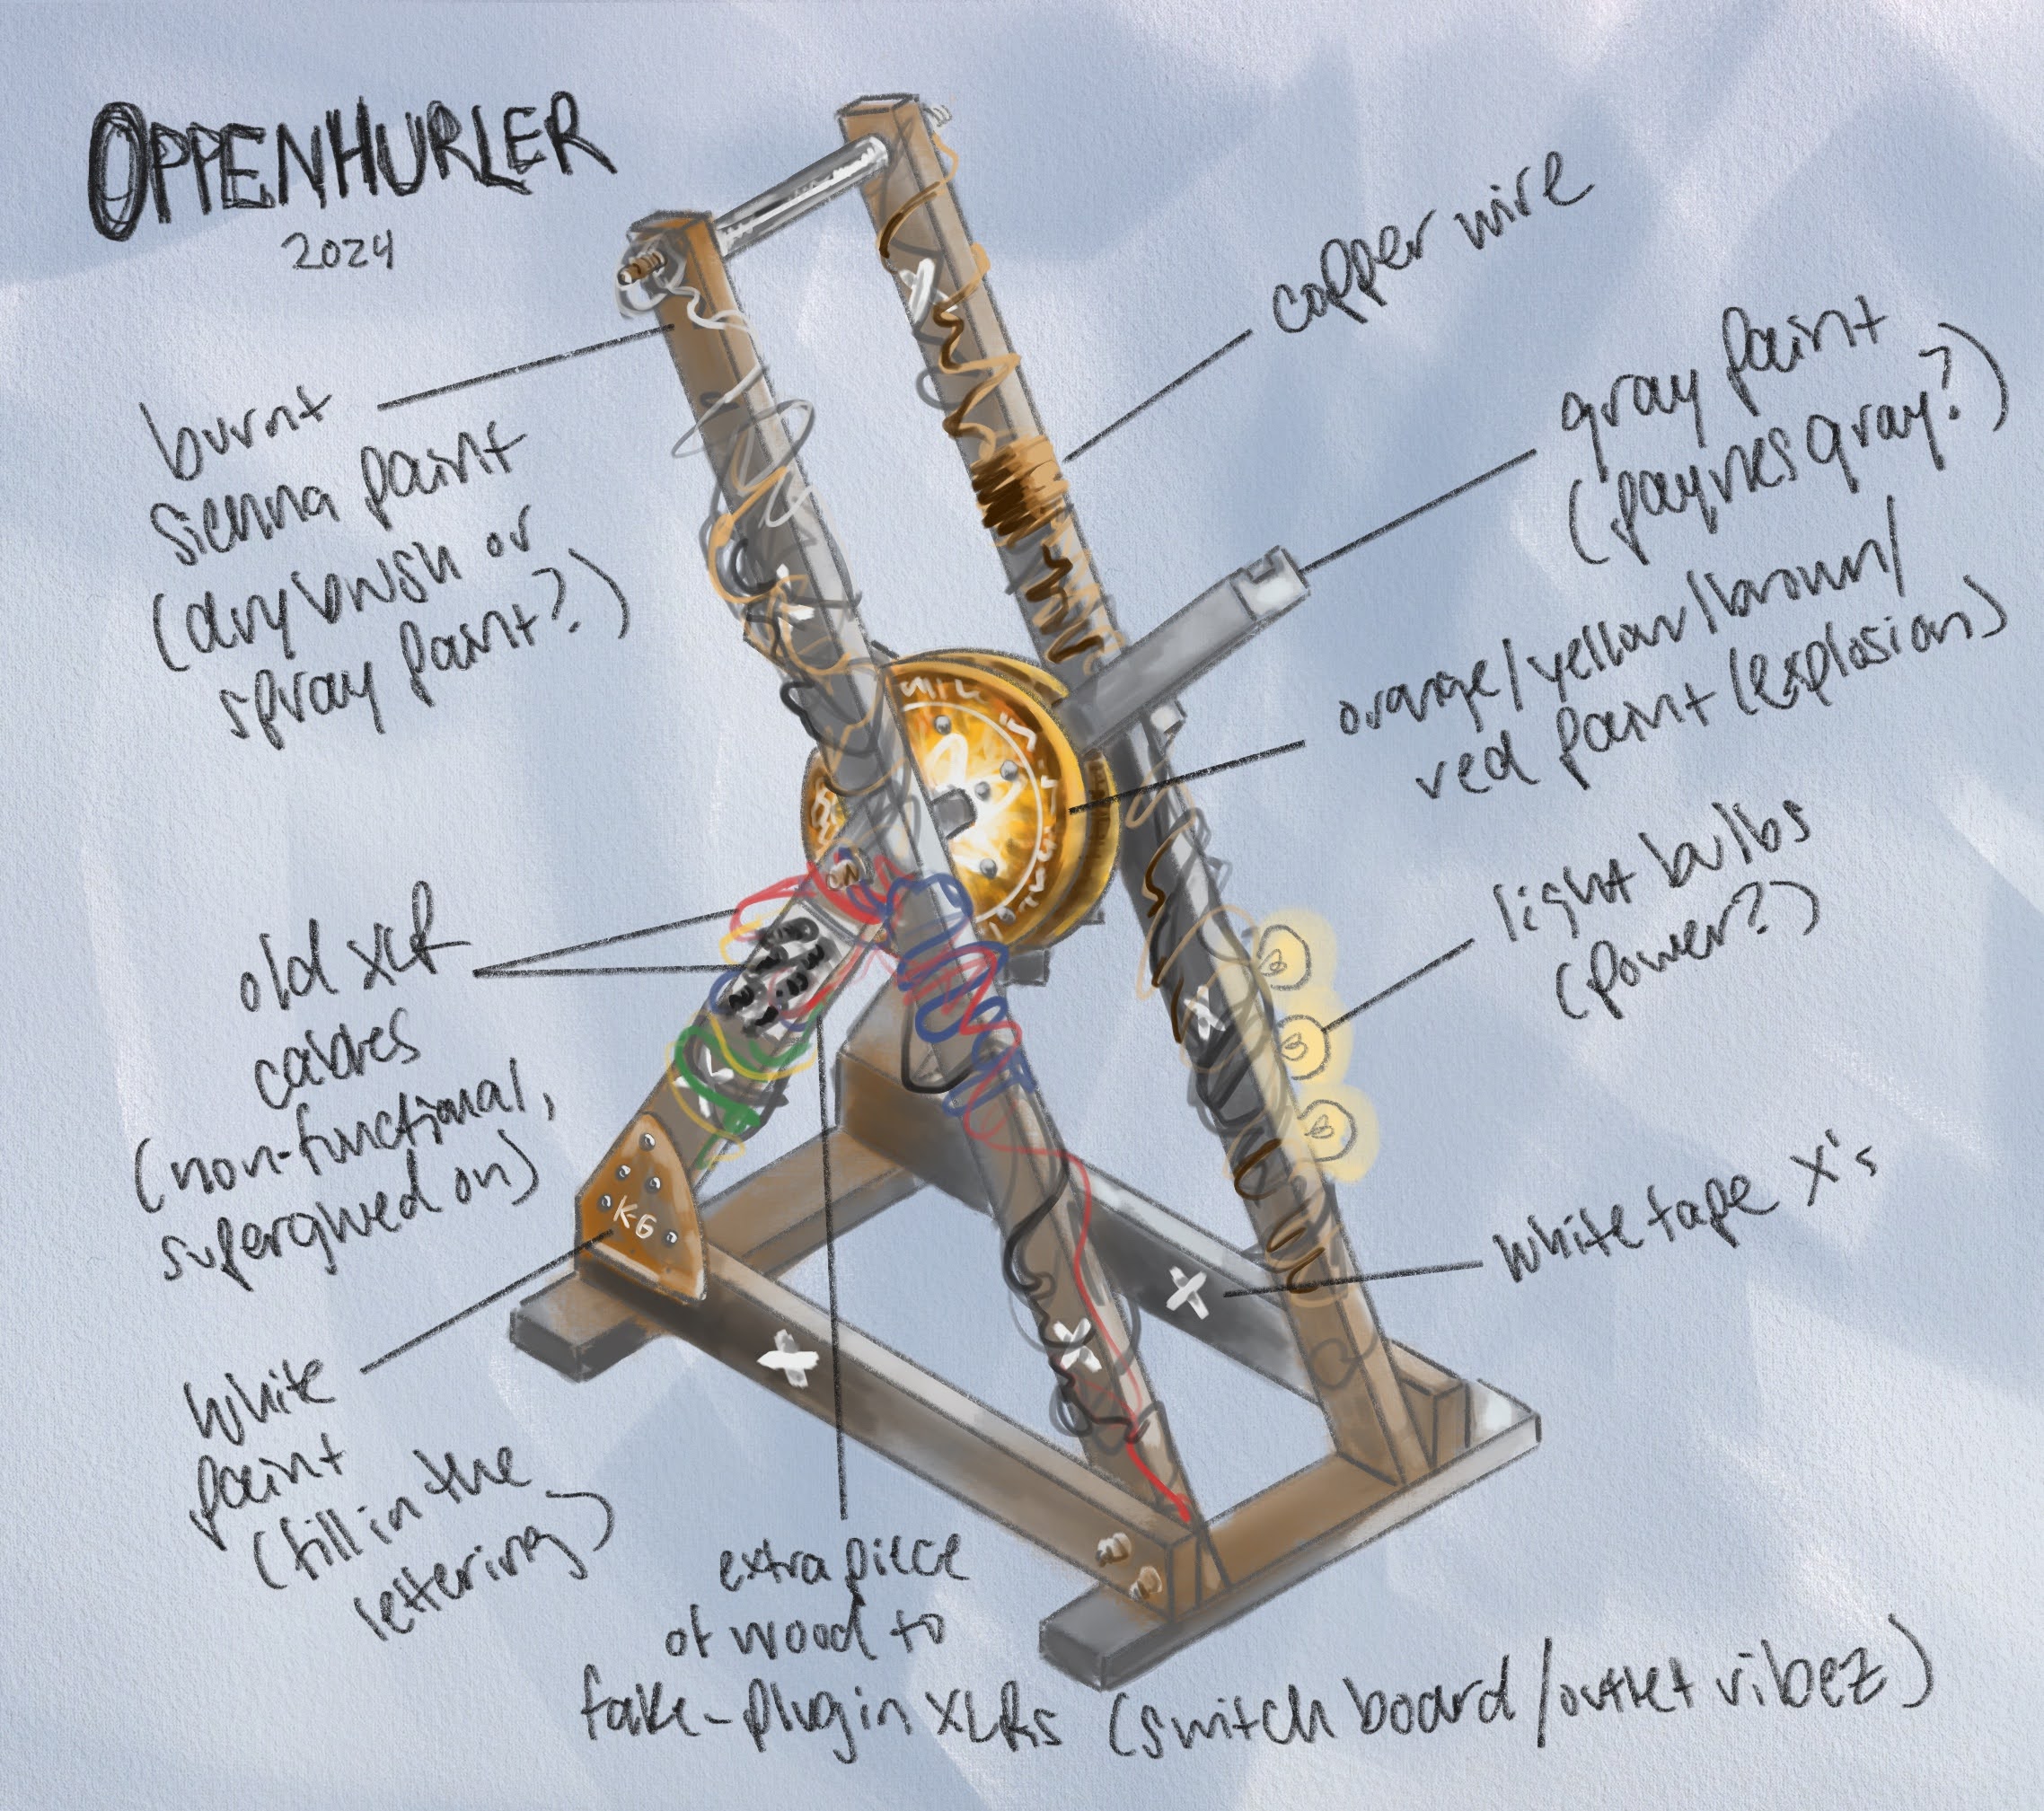 OPPENHURLER
2024
copper wire
gray paint
(paynes gray?)
burnt
sienna paint
(drybrush or
spray paint?)
orange/yellow/brown/
red paint (explosion)
light bulbs
(power?)
old XLR
cables
(non-functional,
superglued on)
white tape X's
K-G
white
paint
(fill in the
lettering)
extra piece
of wood to
fake-plug in XLRs (switch board/outlet vibez)